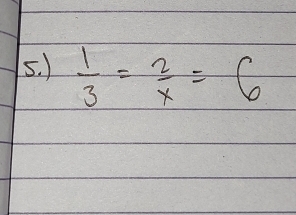 5.) 1/3 = 2/x = 6